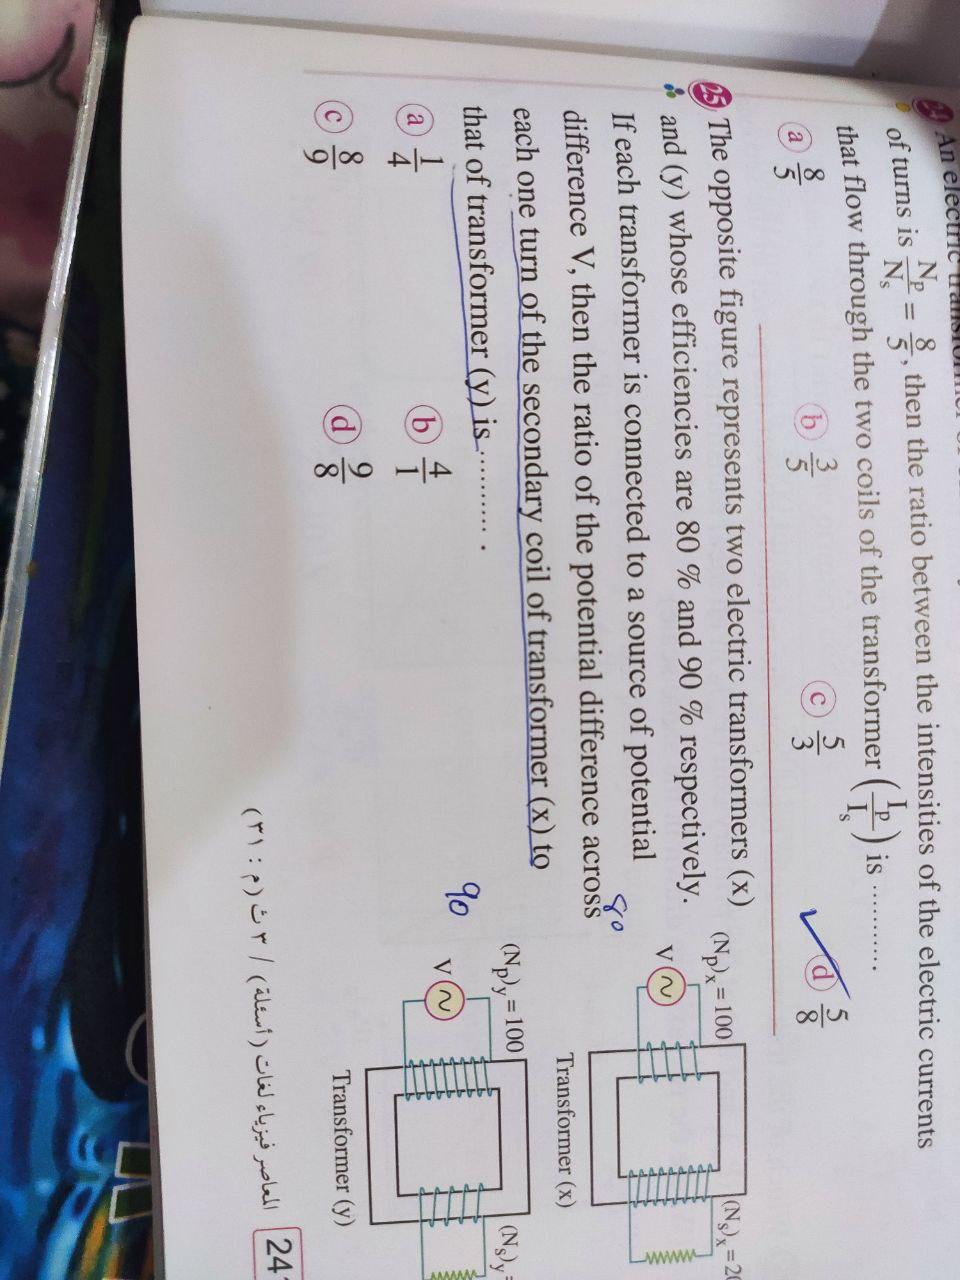 24 An electric transformer
of turns is Np/Ns = 8/5, then the ratio between the intensities of the electric currents
that flow through the two coils of the transformer (Ip/Is) is ............
a 8/5 b 3/5 c 5/3 d 5/8
25 The opposite figure represents two electric transformers (x)
and (y) whose efficiencies are 80 % and 90 % respectively.
If each transformer is connected to a source of potential
difference V, then the ratio of the potential difference across
each one turn of the secondary coil of transformer (x) to
that of transformer (y) is ............
a 1/4 b 4/1
c 8/9 d 9/8
(Np)x = 100
(Ns)x = 20
V
80
Transformer (x)
90
(Np)y = 100
(Ns)y =
V
Transformer (y)
المعاصر فيزياء لغات (أسئلة) / ٣ ث (م : ٣١)
24